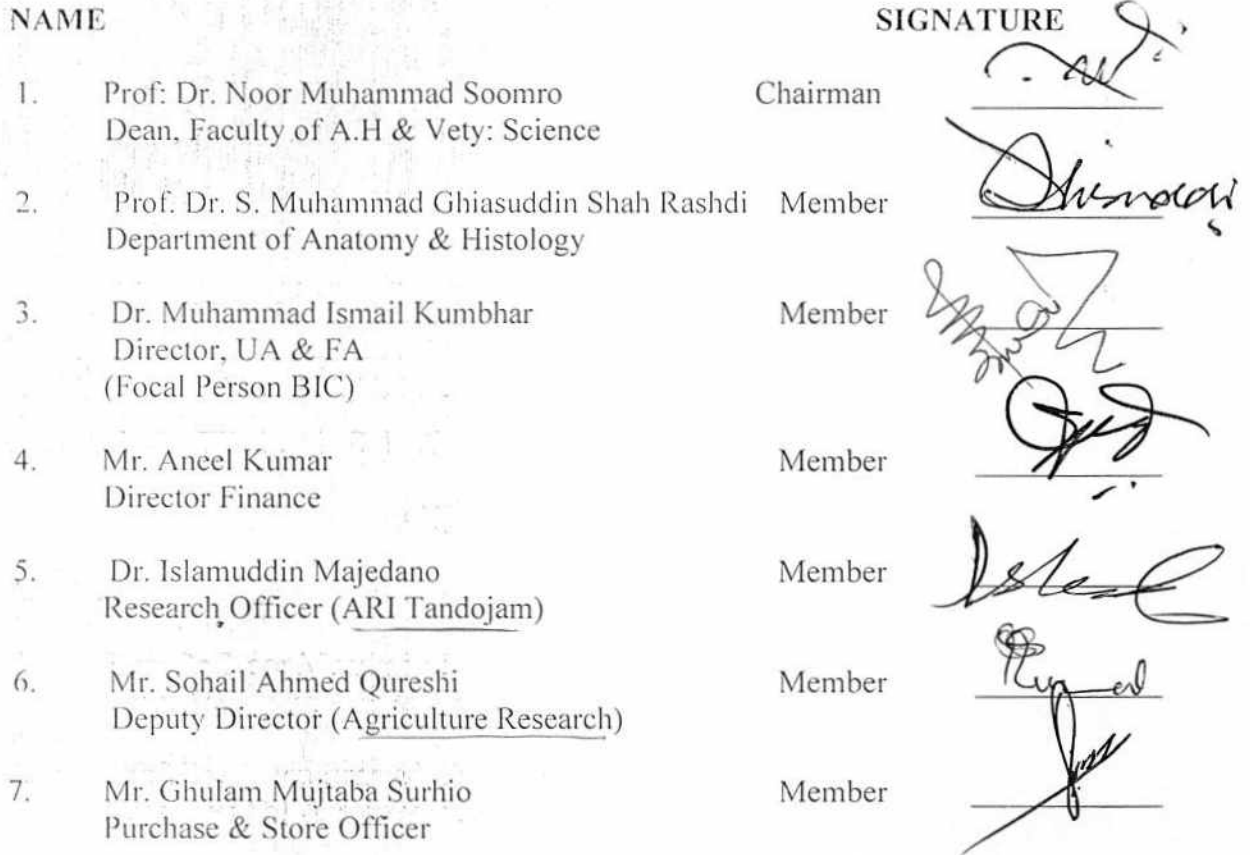 NAME SIGNATURE
1. Prof: Dr. Noor Muhammad Soomro Chairman
Dean, Faculty of A.H & Vety: Science
2. Prof. Dr. S. Muhammad Ghiasuddin Shah Rashdi Member
Department of Anatomy & Histology
3. Dr. Muhammad Ismail Kumbhar Member
Director, UA & FA
(Focal Person BIC)
4. Mr. Aneel Kumar Member
Director Finance
5. Dr. Islamuddin Majedano Member
Research Officer (ARI Tandojam)
6. Mr. Sohail Ahmed Qureshi Member
Deputy Director (Agriculture Research)
7. Mr. Ghulam Mujtaba Surhio Member
Purchase & Store Officer